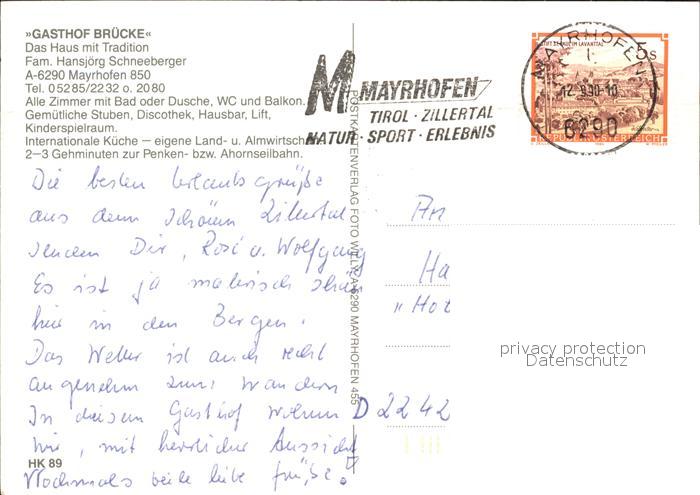 »GASTHOF BRÜCKE«
Das Haus mit Tradition
Fam. Hansjörg Schneeberger
A-6290 Mayrhofen 850
Tel. 05285/2232 o. 2080
Alle Zimmer mit Bad oder Dusche, WC und Balkon.
Gemütliche Stuben, Discothek, Hausbar, Lift,
Kinderspielraum.
Internationale Küche – eigene Land- u. Almwirtsch
2–3 Gehminuten zur Penken- bzw. Ahornseilbahn.
MAYRHOFEN
TIROL · ZILLERTAL
NATUR · SPORT · ERLEBNIS
MAYRHOFEN
12.9.90-10
6290
STIFT ST. PAUL IM LAVANTTAL
5 S
REPUBLIK ÖSTERREICH
POSTKARTENVERLAG FOTO WILLY, A-6290 MAYRHOFEN 455
Die besten Urlaubsgrüße
aus dem schönen Zillertal
senden Dir, Rosi u. Wolfgang
Es ist ja malerisch schön
hier in den Bergen.
Das Wetter ist auch recht
angenehm zum Wandern
In diesem Gasthof wohnen
wir, mit herrlicher Aussicht
Nochmals viele liebe Grüße.
HK 89
An
Ha
"Hot
D 2242
privacy protection
Datenschutz